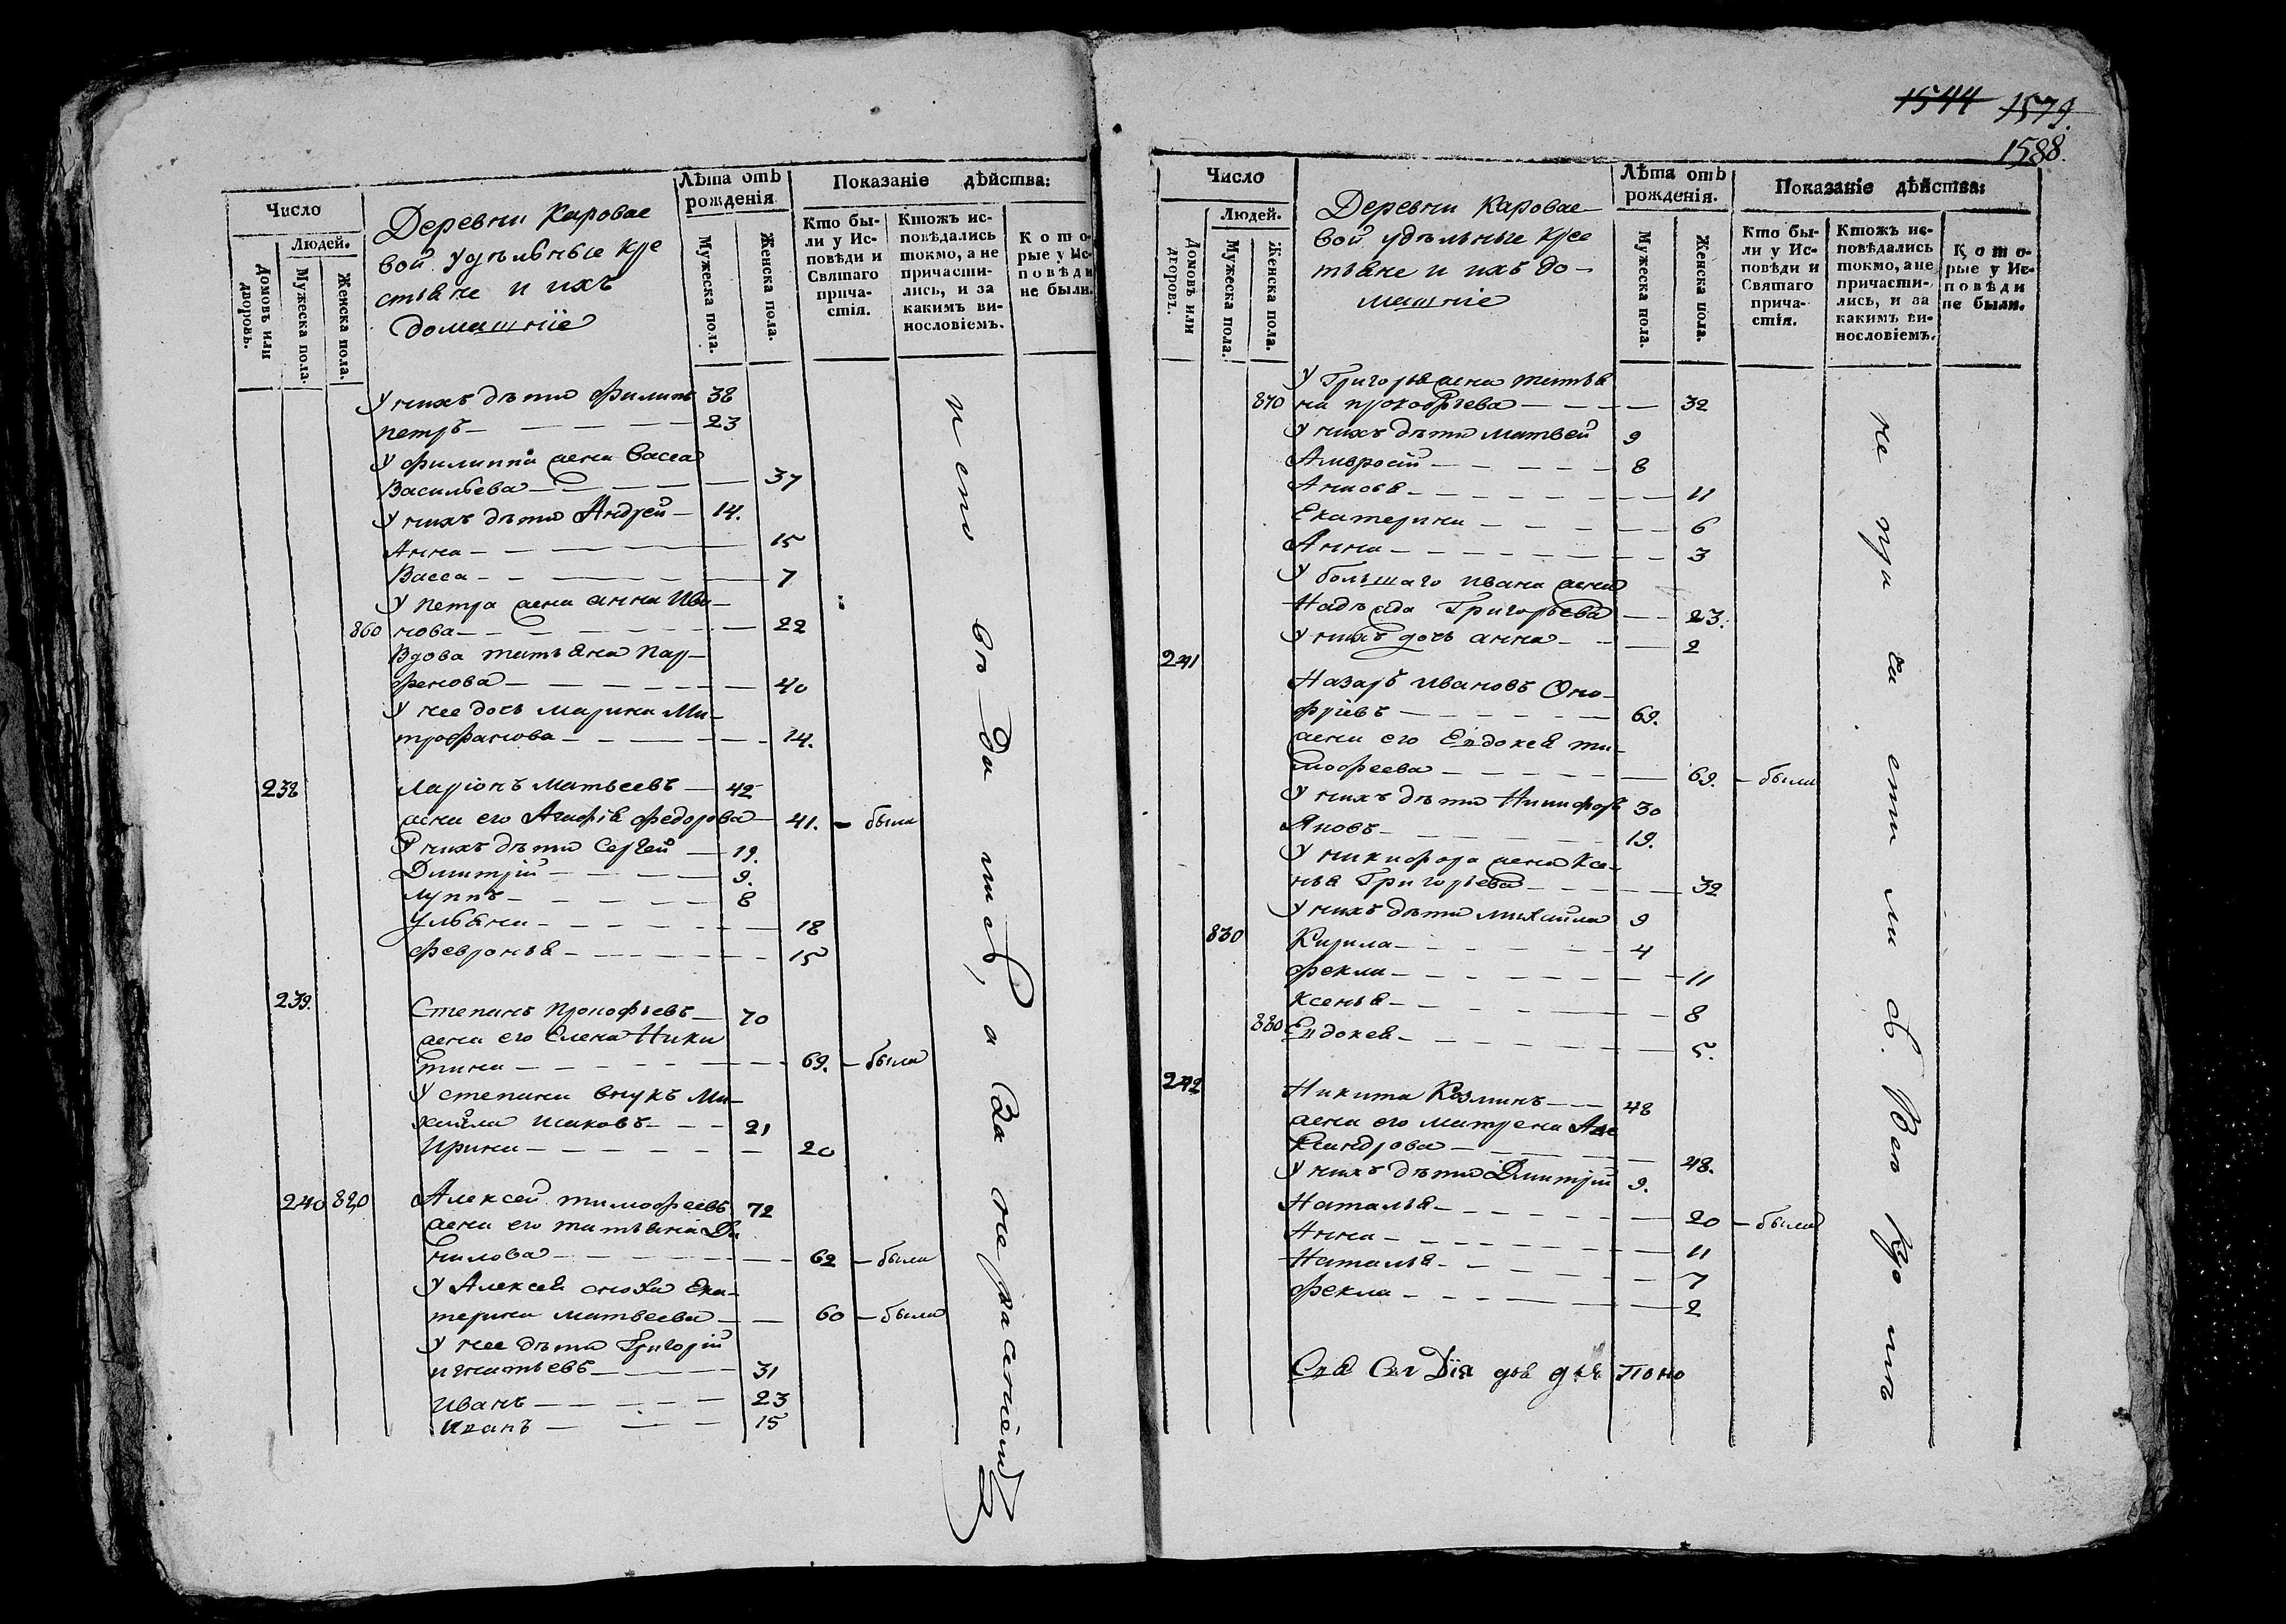 Число
Людей.
Домовъ или дворовъ.
Мужеска пола.
Женска пола.
Деревни Каровае
вой удѣльные кре
стьяне и ихъ
домашніе
Лѣта отъ рожденія
Мужеска пола.
Женска пола.
Показаніе дѣйства:
Кто бы-
ли у Ис-
повѣди и
Святаго
прича-
стія.
Ктожъ ис-
повѣдались
токмо, а не
причасти-
лись, и за
какимъ ви-
нословіемъ.
Кото-
рые у Ис-
повѣди
не были.
У нихъ дѣти Филипъ 38
Петръ 23
У Филиппа жена Васса
Васильева 37
У нихъ дѣти Андрей 14.
Анна 15
Васса 7
У Петра жена Анна Ива-
860 нова 22
Вдова Татьяна Пар-
фенова 40
У нее дочь Марина Ми-
трофанова 14.
238 Ларіонъ Матвеевъ 42
жена его Агафія Федорова 41. была
У нихъ дѣти Сергей 19.
Димитрій 9.
Луппъ 8
Ульяна 18
Февронья 15
239. Степанъ Прокофьевъ 70
жена его Елена Ники
тина 69. была
У Степана внукъ Ми-
хайла Исаковъ 21
Ирина 20
240 820 Алексей Тимофеевъ 72
жена его Татьяна Да
нилова 62 была
У Алексея сноха Ека-
терина Матвеева 60 была
У нее дѣти Григорій
Игнатьевъ 31
Иванъ 23
Иванъ 15
а за нерасаніемъ
1544 1579.
1588.
Число
Людей.
Домовъ или дворовъ.
Мужеска пола.
Женска пола.
Деревни Каровае
вой удѣльные кре
стьяне и ихъ до-
машніе
Лѣта отъ рожденія.
Мужеска пола.
Женска пола.
Показаніе дѣйства:
Кто бы-
ли у Ис-
повѣди и
Святаго
прича-
стія.
Ктожъ ис-
повѣдались
токмо, а не
причасти-
лись, и за
какимъ ви-
нословіемъ.
Кото-
рые у Ис-
повѣди
не были.
У Григорья жена Татья
870 на Прокофьева 32
У нихъ дѣти Матвей 9
Амвросій 8
Анисья 11
Екатерина 6
Анна 3
У большаго Ивана жена
Надѣжда Григорьева 23.
У нихъ дочь Анна 2
241 Назаръ Ивановъ Оно-
фріевъ 69.
жена его Евдокея Ти-
мофеева 69. была
У нихъ дѣти Никифоръ 30
Яковъ 19.
У Никифора жена Ксе-
нья Григорьева 32
У нихъ дѣти Михайла 9
830 Кирила 4
Фекла 11
Ксенья 8
880 Евдокея 5.
242 Никита Козминъ 48
жена его Матрена Але
ксандрова 48.
У нихъ дѣти Димитрій 9.
Наталья 20 была
Анна 11
Наталья 7
Фекла 2
не причастились.